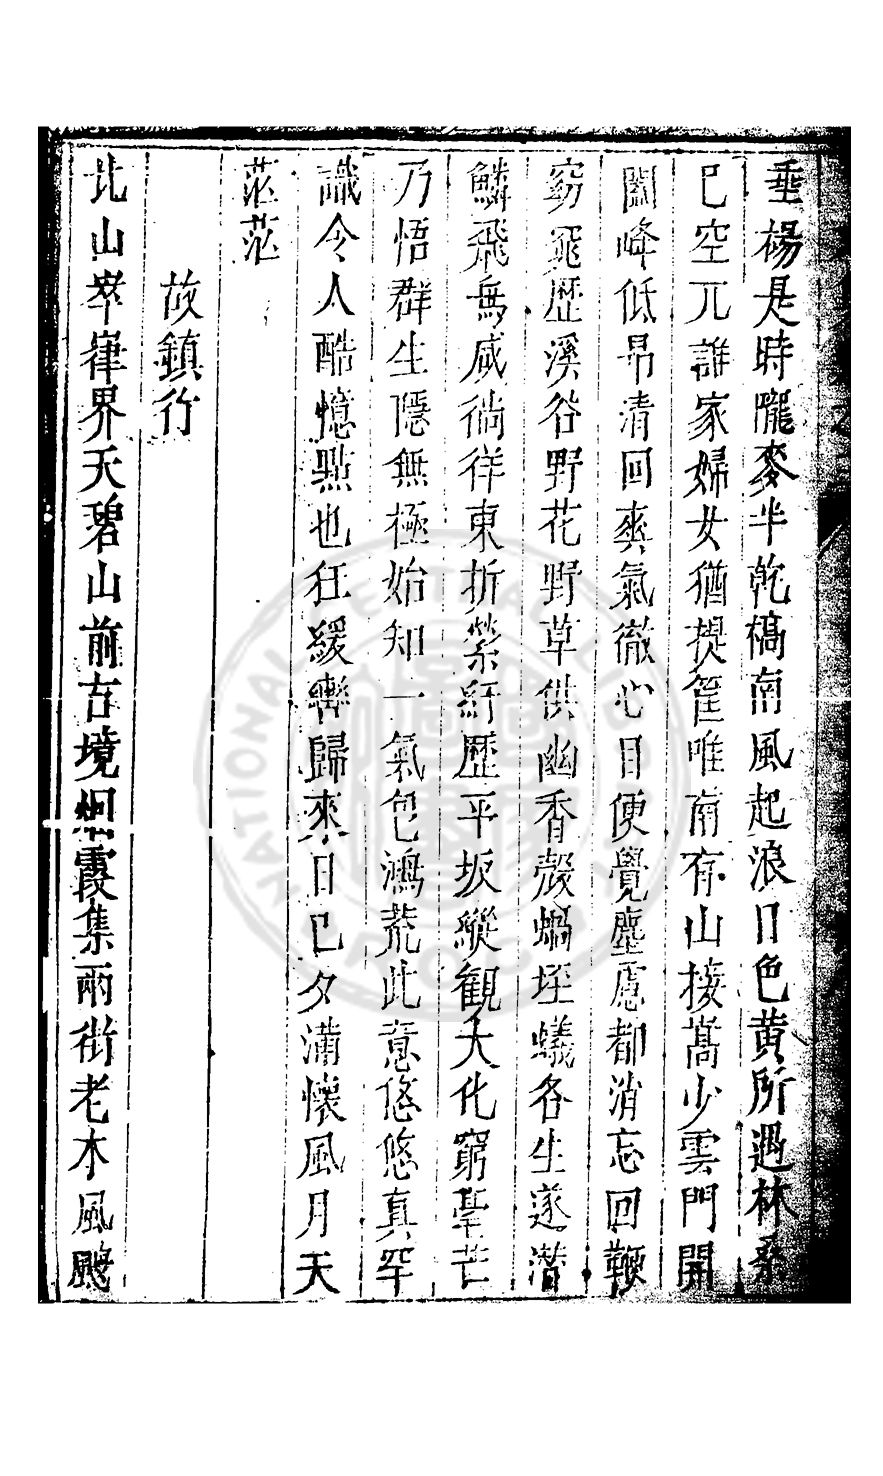 垂楊是時隴麥半乾槁南風起浪日色黄所遇林桑
已空兀誰家婦女猶提筐唯南有山接嵩少雲門開
闔峰低昻清回爽氣徹心目便覺塵慮都消忘回鞭
窈窕歷溪谷野花野草供幽香殼蝸垤蟻各生遂潛
鱗飛鳥咸徜徉東折縈紆歷平坂縱觀大化窮毫芒
乃悟群生隱無極始知一氣包鴻荒此意悠悠真罕
識令人酷憶點也狂緩轡歸來日已夕滿懷風月天
茫茫
故鎮行
北山崒嵂界天碧山前古境烟霞集兩街老木風颼